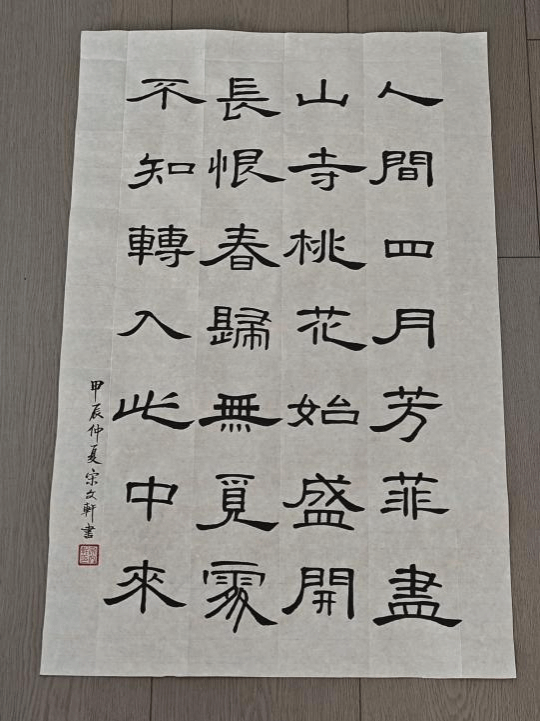 人間四月芳菲盡
山寺桃花始盛開
長恨春歸無覓處
不知轉入此中來
甲辰仲夏宋文軒書